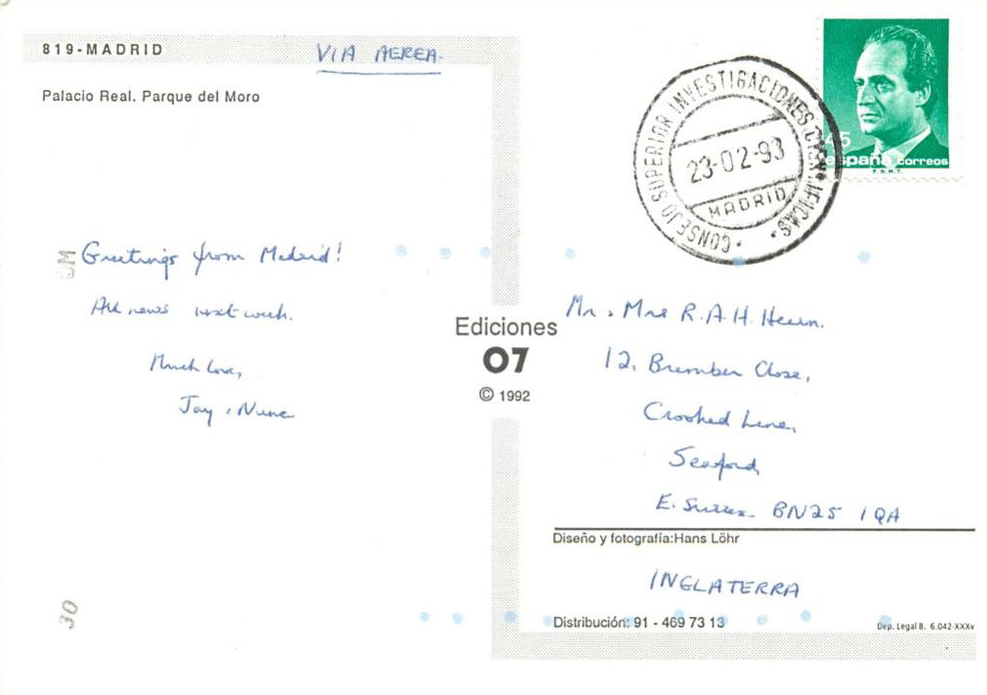 819-MADRID
VIA AEREA.
Palacio Real. Parque del Moro
CONSEJO SUPERIOR INVESTIGACIONES CIENTIFICAS
23-02-93
MADRID
45
españa correos
F.N.M.T.
Greetings from Madrid!
All news next week.
Much Love,
Jay
Ediciones
07
© 1992
Mr. Mrs R.A.H.
12, Close,
Crooked Lane,
Seaford,
E. Sussex. BN25 1QA
Diseño y fotografía:Hans Löhr
INGLATERRA
Distribución: 91 - 469 73 13
Dep. Legal B. 6.042-XXXv
30